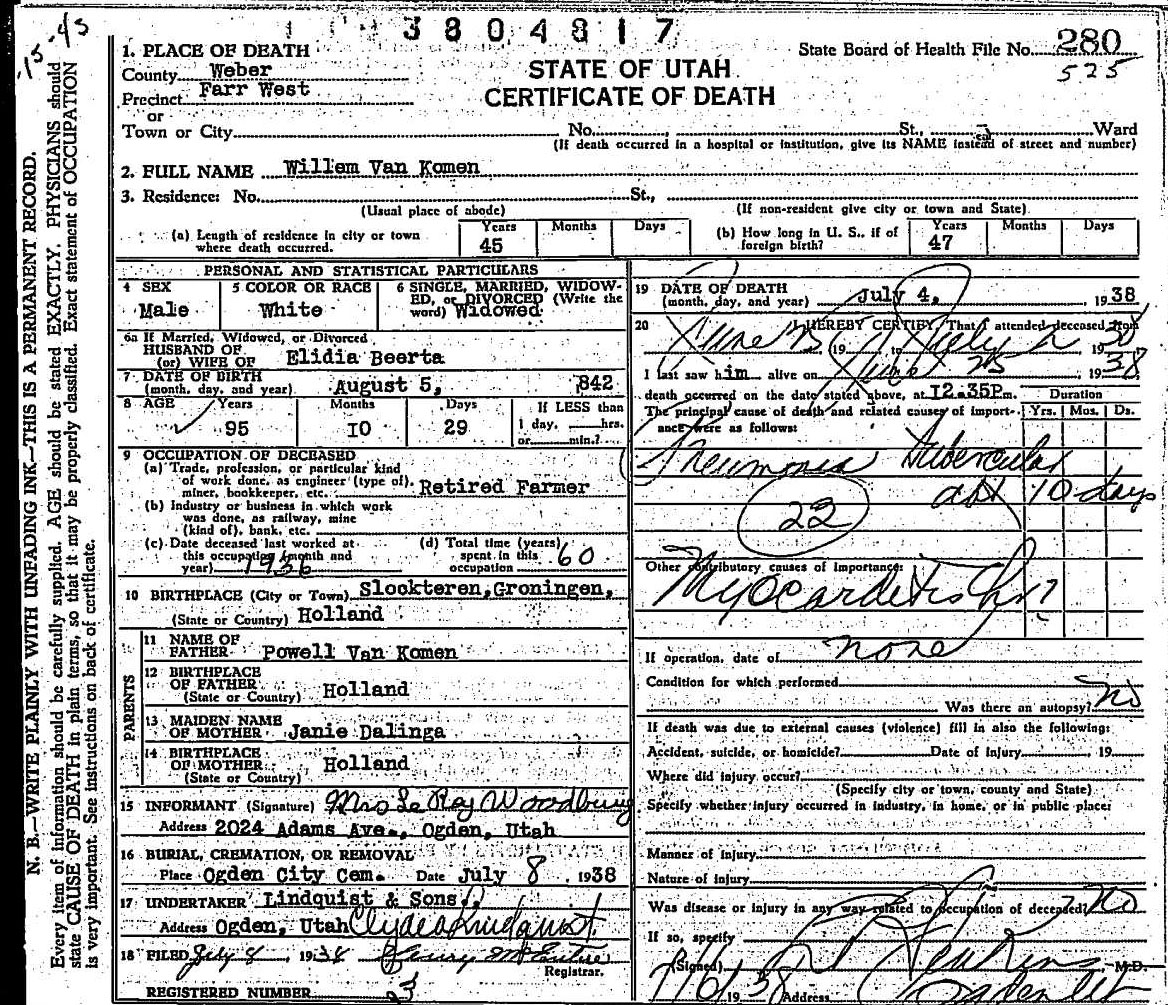 3804817
15 45
1. PLACE OF DEATH
County Weber
Precinct Farr West
or
Town or City No. St., Ward
STATE OF UTAH
CERTIFICATE OF DEATH
State Board of Health File No. 280
525
(If death occurred in a hospital or institution, give its NAME instead of street and number)
2. FULL NAME Willem Van Komen
3. Residence: No. St.,
(Usual place of abode) (If non-resident give city or town and State)
(a) Length of residence in city or town where death occurred. Years 45 Months Days
(b) How long in U. S., if of foreign birth? Years 47 Months Days
PERSONAL AND STATISTICAL PARTICULARS
4 SEX Male
5 COLOR OR RACE White
6 SINGLE, MARRIED, WIDOWED, or DIVORCED (Write the word) Widowed
6a If Married, Widowed, or Divorced
HUSBAND OF
(or) WIFE OF Elidia Beerta
7 DATE OF BIRTH
(month, day, and year) August 5, 842
8 AGE Years 95 Months I0 Days 29
If LESS than
1 day, hrs.
or min.?
9 OCCUPATION OF DECEASED
(a) Trade, profession, or particular kind
of work done, as engineer (type of),
miner, bookkeeper, etc. Retired Farmer
(b) Industry or business in which work
was done, as railway, mine
(kind of), bank, etc.
(c) Date deceased last worked at
this occupation (month and
year) 1936
(d) Total time (years)
spent in this
occupation 60
10 BIRTHPLACE (City or Town) Slookteren, Groningen,
(State or Country) Holland
PARENTS
11 NAME OF
FATHER Powell Van Komen
12 BIRTHPLACE
OF FATHER
(State or Country) Holland
13 MAIDEN NAME
OF MOTHER Janie Dalinga
14 BIRTHPLACE
OF MOTHER
(State or Country) Holland
15 INFORMANT (Signature) Mrs Le Roy Woodbury
Address 2024 Adams Ave., Ogden, Utah
16 BURIAL, CREMATION, OR REMOVAL
Place Ogden City Cem. Date July 8, 1938
17 UNDERTAKER Lindquist & Sons,
Address Ogden, Utah Clyde Lindquist
18 FILED July 8, 1938
Registrar.
REGISTERED NUMBER
19 DATE OF DEATH
(month, day, and year) July 4, 1938
20 I HEREBY CERTIFY, That I attended deceased from
June 19 to July 2 1938
I last saw him alive on June 25 1938
death occurred on the date stated above, at I2.35P m.
The principal cause of death and related causes of importance were as follows:
Duration
Yrs. Mos. Ds.
Pneumonia Tubercular
abt 10 days
22
Other contributory causes of importance:
Myocarditis Chr ?
If operation, date of none
Condition for which performed
Was there an autopsy? No
If death was due to external causes (violence) fill in also the following:
Accident, suicide, or homicide? Date of injury 19
Where did injury occur?
(Specify city or town, county and State)
Specify whether injury occurred in industry, in home, or in public place:
Manner of injury
Nature of injury
Was disease or injury in any way related to occupation of deceased? No
If so, specify
(Signed) Jenkins M.D.
7/6/1938 Address Ogden Ut
N. B.—WRITE PLAINLY WITH UNFADING INK—THIS IS A PERMANENT RECORD.
Every item of information should be carefully supplied. AGE should be stated EXACTLY. PHYSICIANS should
state CAUSE OF DEATH in plain terms, so that it may be properly classified. Exact statement of OCCUPATION
is very important. See instructions on back of certificate.